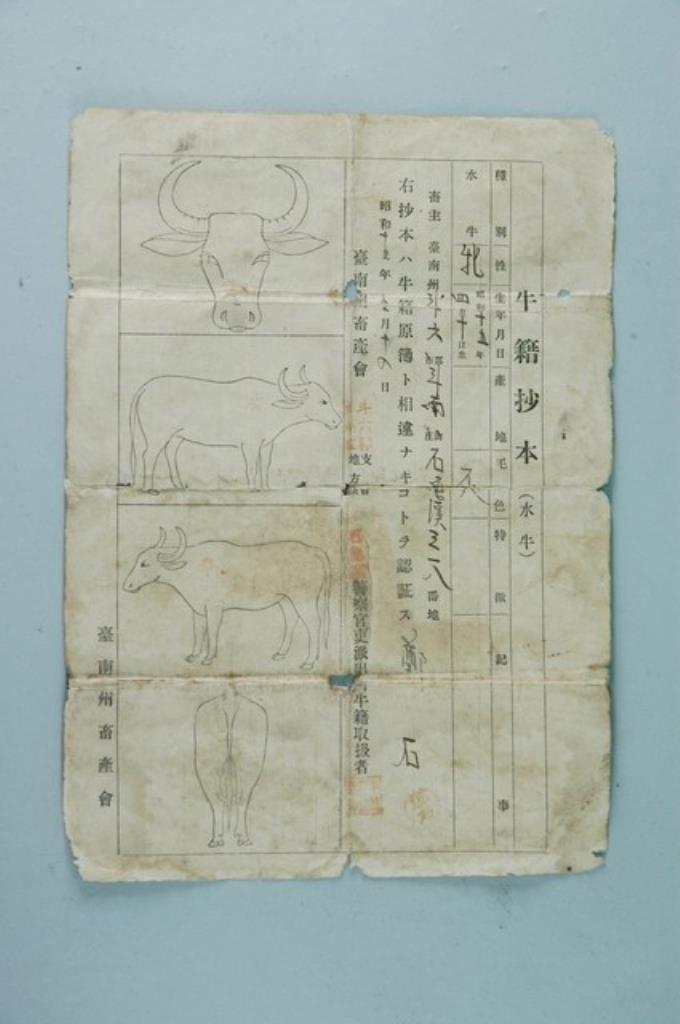 牛籍抄本（水牛）
種別 性 生年月日 產地 毛色 特徵 記事
水牛 牝 昭和十五年四月十日生 灰
畜主 臺南州斗六郡斗南街庄石龜溪三一八番地 鄭石
右抄本ハ牛籍原簿ト相違ナキコトヲ認証ス
昭和十五年 月十 日
臺南州畜產會 支 地方
警察官吏派出所牛籍取扱者
臺南州畜產會